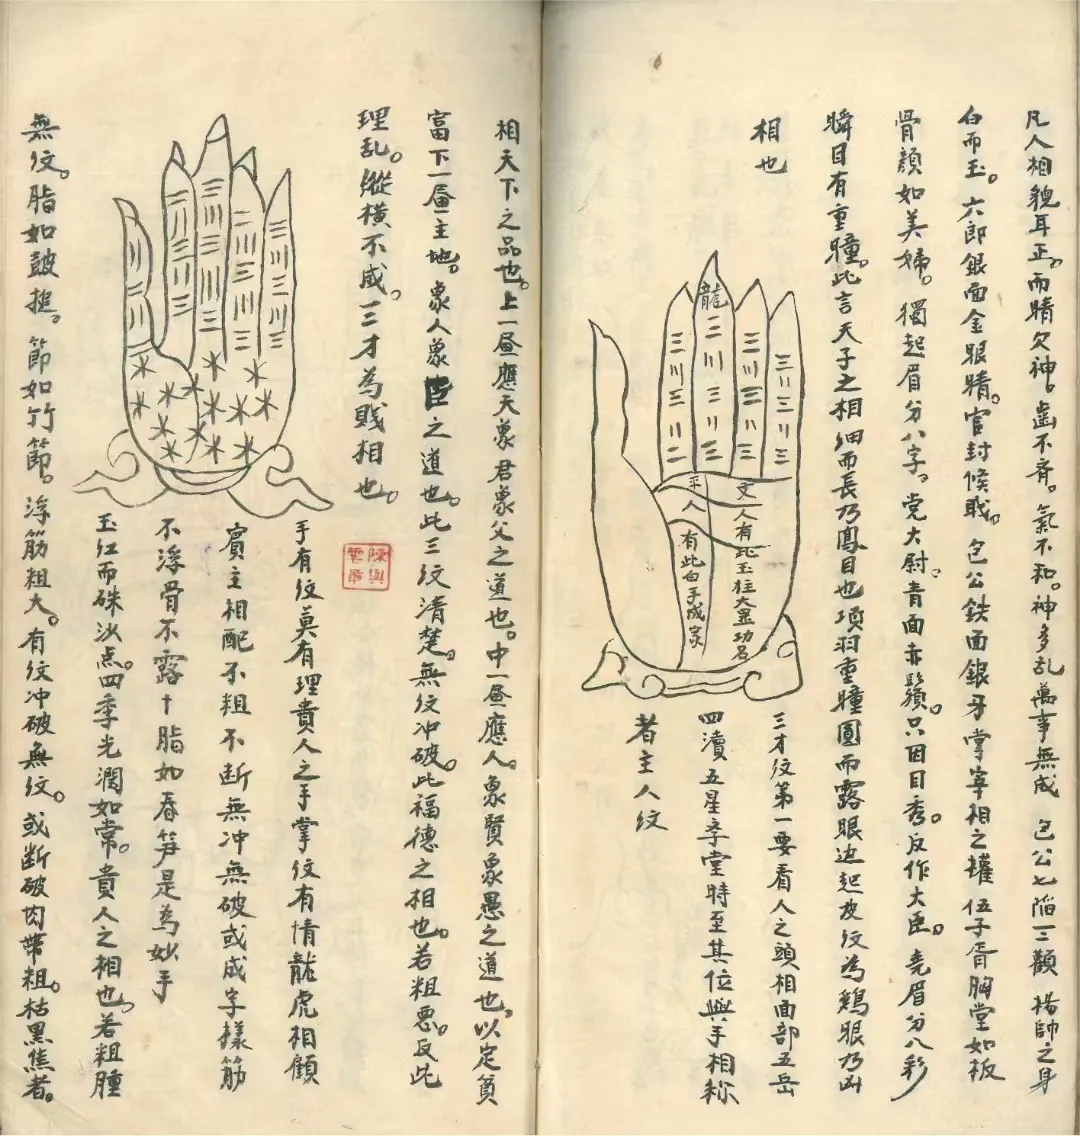 凡人相貌耳正。而睛欠神。齒不齊。氣不和。神多乱萬事無成 包公七陷三顴 楊帥之身
白而玉。六郎銀面金眼睛。官封侯戝。包公鉄面銀牙掌宰相之權 伍子胥胸堂如板
骨顏如美婦。獨起眉分八字。党大尉青面赤鬚。只因目秀。反作大臣。堯眉分八彩
瞬目有重瞳。此言天子之相細而長乃鳳目也項羽重瞳圓而露眼边起皮紋為鷄眼乃凶
相也
龍
三川三二
二川三川三
三川三二
三二三二三
文人有此玉柱大累功名
平人有此白手成家
三才紋第一要看人之頭相面部五岳
四瀆五星孛堂時至其位與手相称
者主人紋
相天下之品也。上一昼應天象君象父之道也。中一昼應人。象賢象愚之道也。以定貧
富下一昼主地。象人象臣之道也。此三紋清楚。無紋冲破。此福德之相也。若粗悪。反此
理乱。縱横不成。一三才為賎相也。
陳興
手有紋莫有理貴人之手掌紋有情龍虎相顧
賓主相配不粗不断無冲無破或成字樣筋
不浮骨不露十脂如春笋是為妙手
玉红而硃汐点。四季光潤如常。貴人之相也。若粗腫
無紋。脂如皷搥。節如竹節。浮筋粗大。有紋冲破無紋。或断破肉帶粗。枯黑焦者。